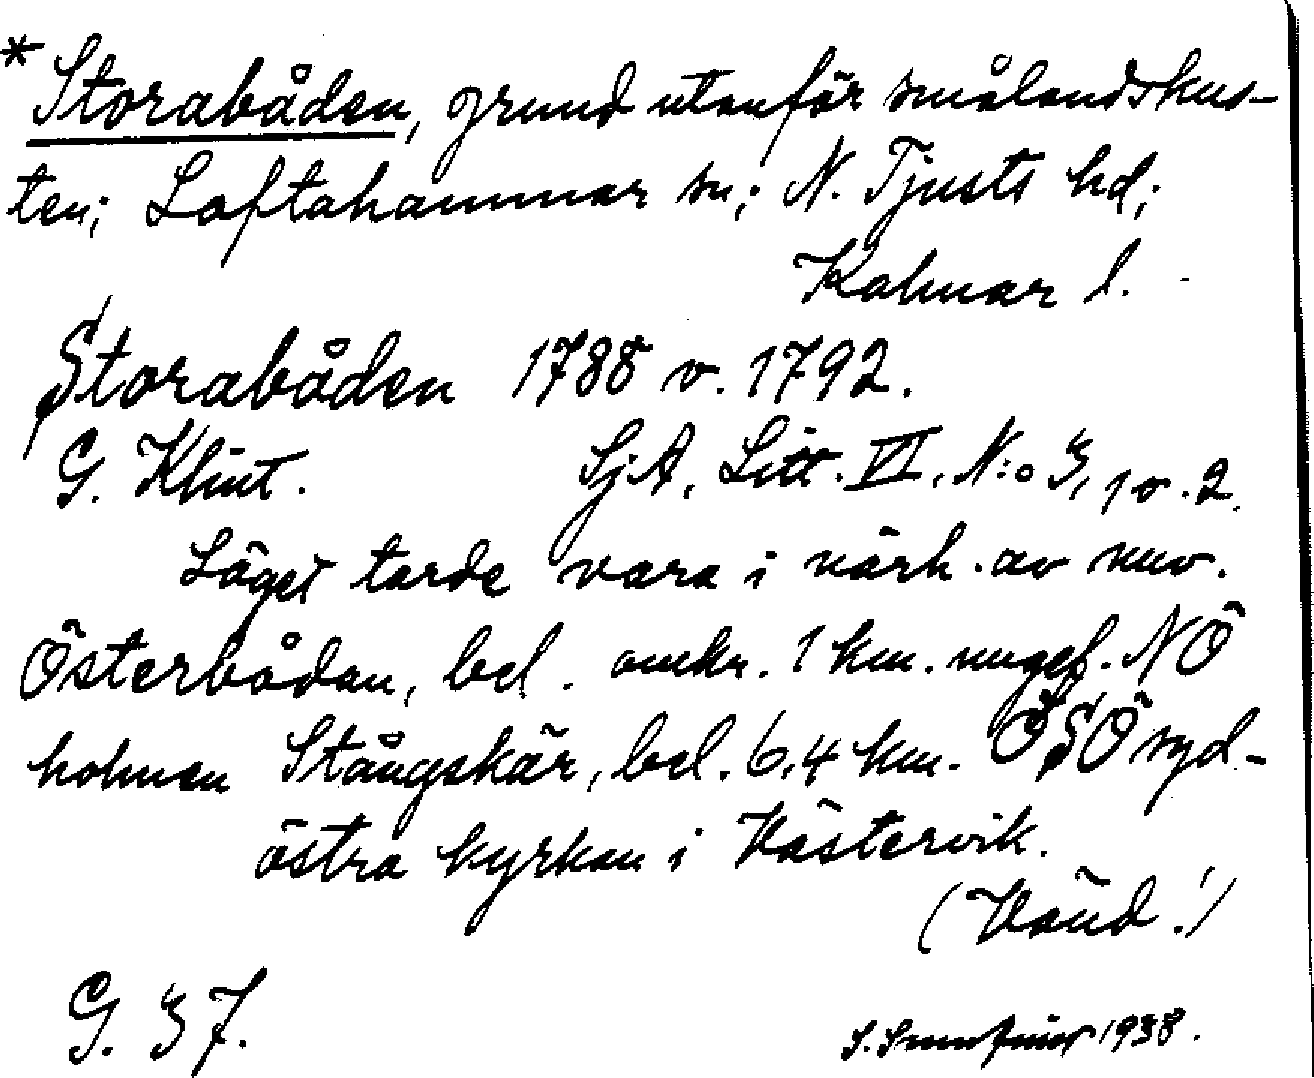 *Storabåden, grund utanför smålandskus-
ten; Loftahammar sn; N. Tjusts hd;
Kalmar l.
Storabåden 1788 o. 1792.
G. Klint. SjA, Litt. VI, N:o 3, 1 o. 2.
Läget torde vara i närh. av nuv.
Österbådan, bel. omkr. 1 km. ungef. NÖ
holmen Stångskär, bel. 6,4 km. ÖSÖ syd-
östra kyrkan i Västervik.
(Vänd!)
G. 37. S. 1938.